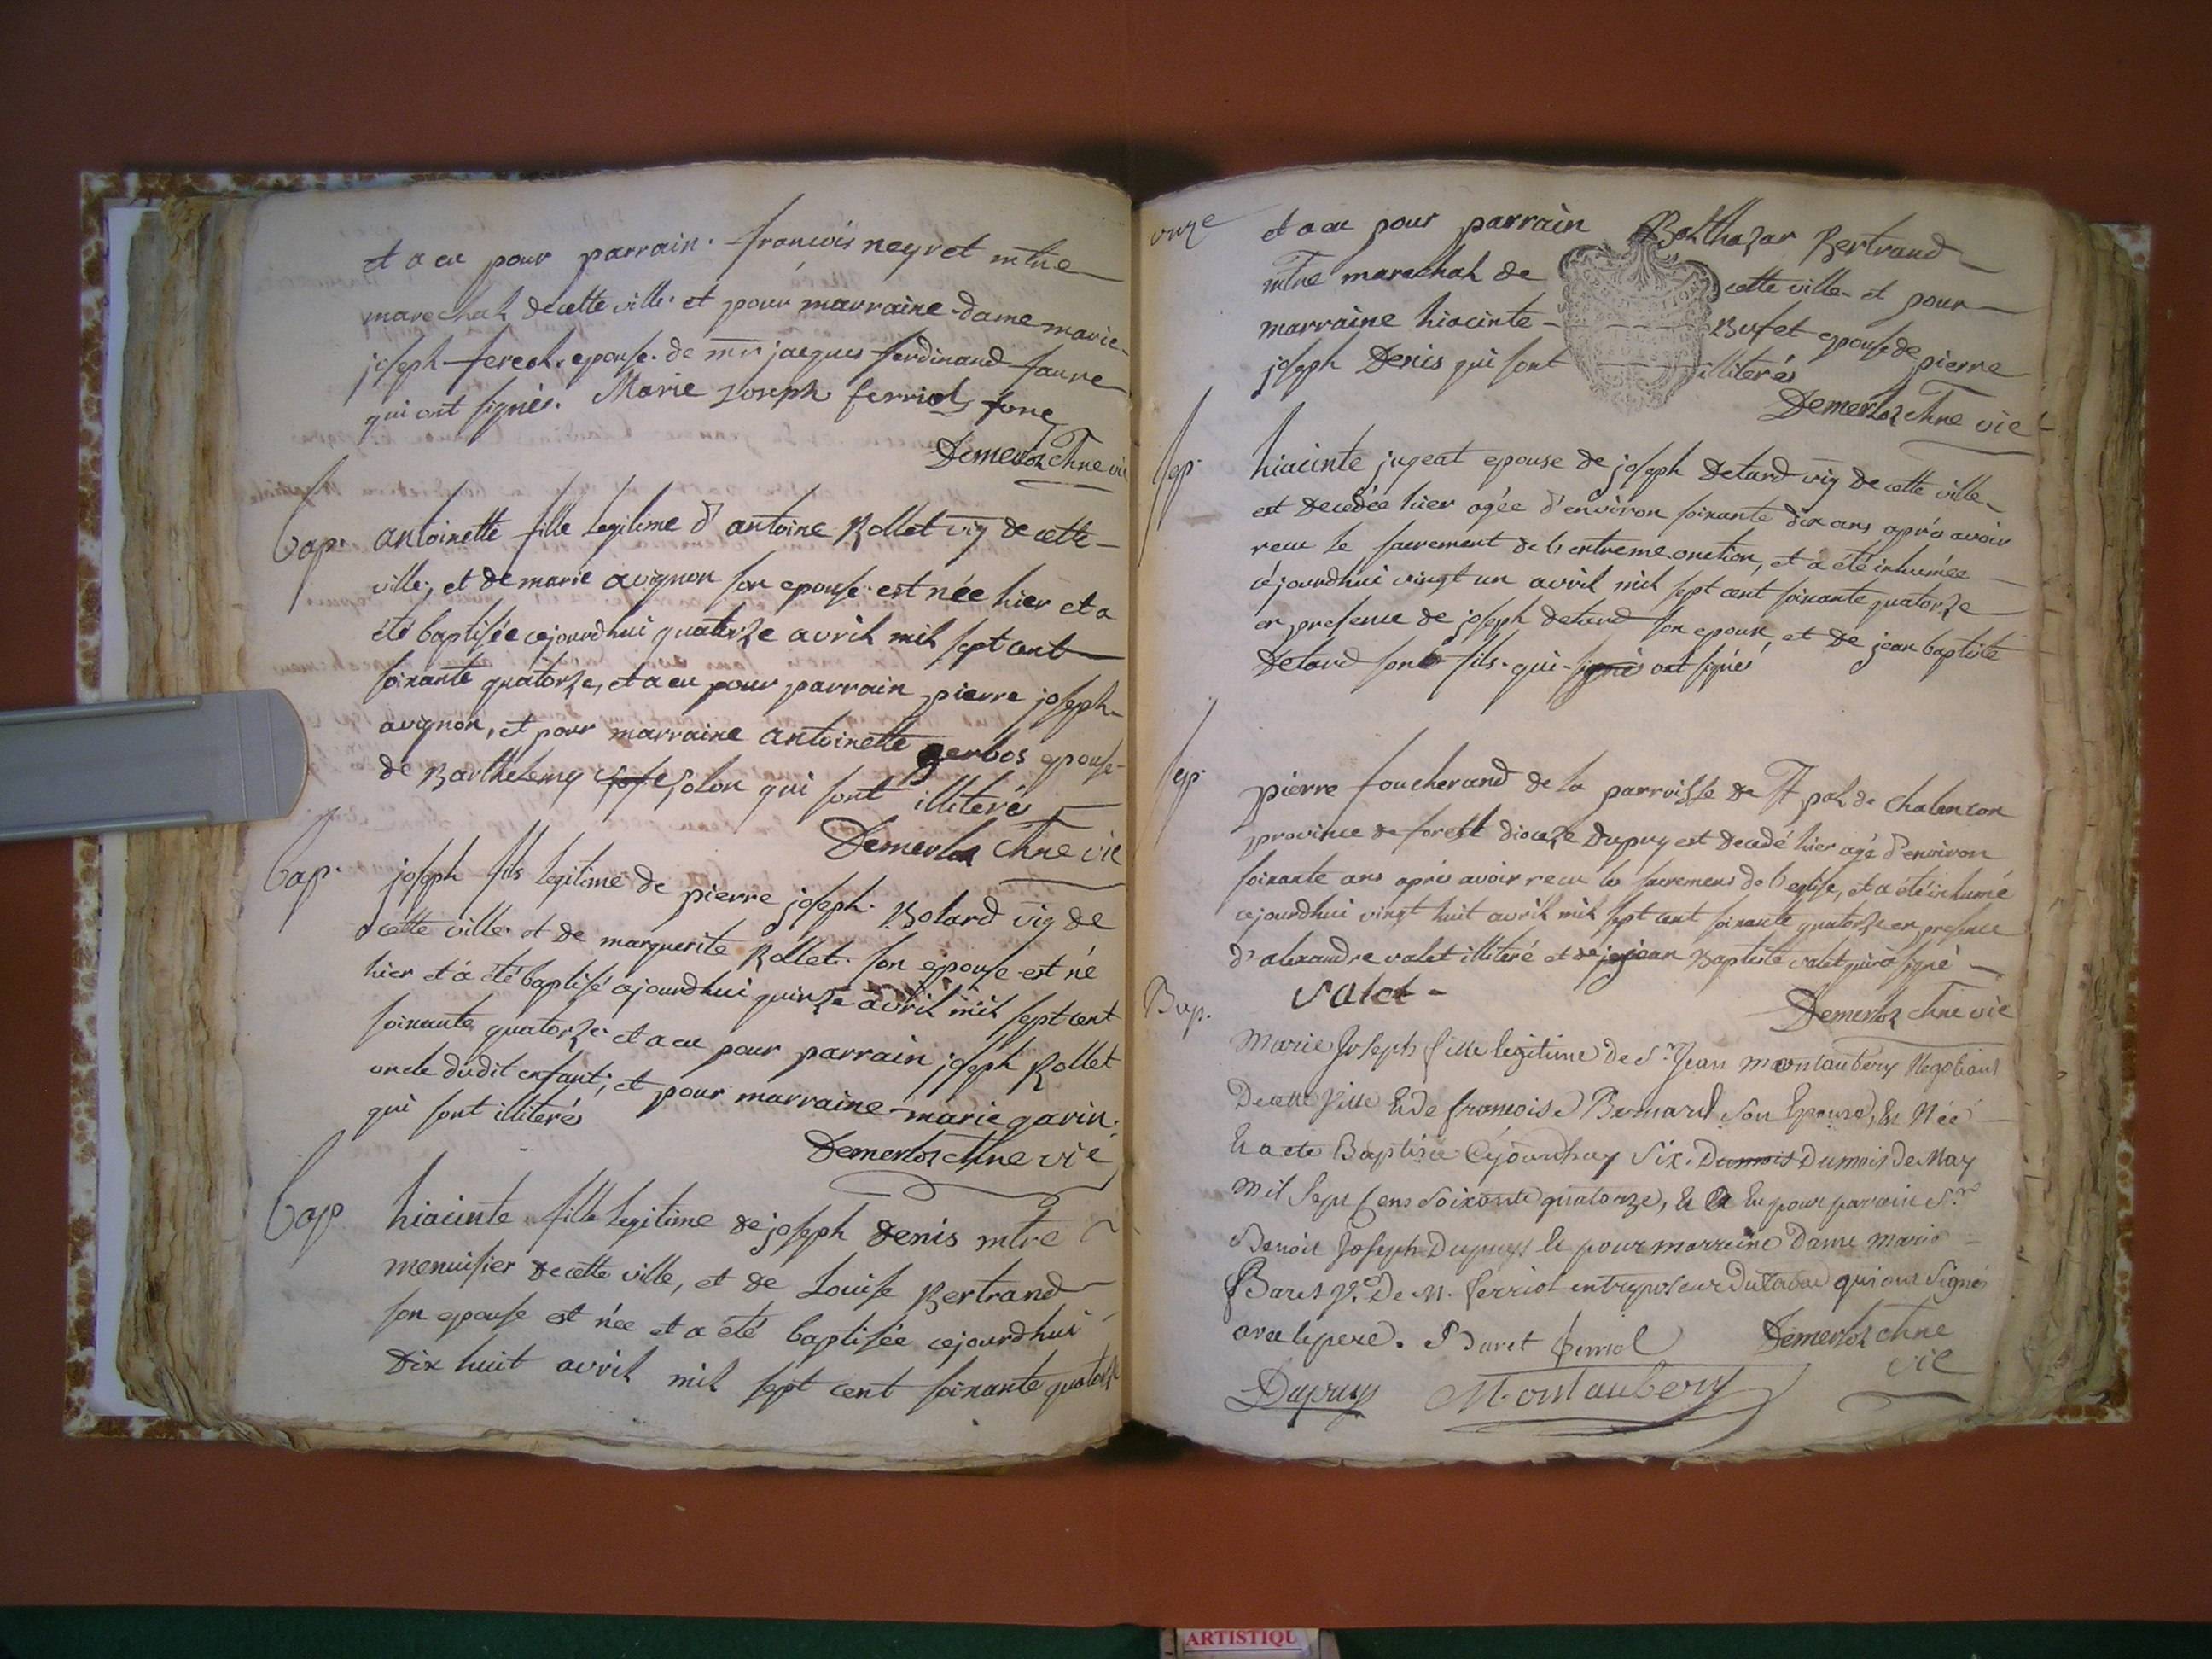 et a eu pour parrain. francois neyret mtre
marechal de cette ville. et pour marraine dame marie
joseph fereol. epouse. de mr jacques ferdinand faure
qui ont signés. Marie Joseph ferriol fore
Demerloz Chne vic
bap. antoinette fille legitime d'antoine Rollet vig de cette
ville, et de marie avignon son epouse. est née hier et a
été baptisée cejourdhui quatorze avril mil sept cent
soixante quatorze, et a eu pour parrain pierre joseph
avignon, et pour marraine antoinette gerbos epouse
de Barthelemy Solon qui sont illiterés
Demerloz Chne vic
bap. joseph fils legitime de pierre joseph. Bolard vig de
cette ville. et de marguerite Rollet. son epouse est né
hier et a été baptisé cejourdhui quinze avril mil sept cent
soixante quatorze. et a eu pour parrain joseph Rollet
oncle dudit enfant, et pour marraine marie gavin.
qui sont illiterés
Demerloz chne vic
bap hiacinte fille legitime de joseph Denis mtre
menuisier de cette ville, et de Louise Bertrand
son epouse est née et a été baptisée cejourdhui
Dix huit avril mil sept cent soixante quatorze
onze et a eu pour parrain Balthazar Bertrand
mtre marechal de cette ville et pour
marraine hiacinte Bufet epouse de pierre
joseph Denis qui sont illiterés
Demerloz Chne vic
sep. hiacinte jugeat epouse de joseph Detard vig de cette ville
est decedée hier agée d'environ soixante dix ans aprés avoir
recu le sacrement de l'extreme onction, et a été inhumée
cejourdhui vingt un avril mil sept cent soixante quatorze
en presence de joseph detard son epoux, et de jean baptiste
Detard son fils. qui signés ont signés
sep. pierre foucherand de la parroisse de St pal de chalencon
province de forest dioceze Dupuy est decedé hier agé d'environ
soixante ans aprés avoir recu les sacremens de l'eglise, et a été inhumé
cejourdhui vingt huit avril mil sept cent soixante quatorze en presence
d'alexandre valet illiteré et de jean Baptiste valet qui a signé
valet
Demerloz chne vic
Bap. Marie Joseph fille legitime de Sr Jean montaubery Negotiant
De cette Ville Et de francoise Bernard son Epouse, Est Née
Et a ete Baptisée Cejourdhuy Six. Dumois Dumois De May
Mil Sept Cens Soixante quatorze, Et a Eu pour parrain Sr
Benoit Joseph Dupuys Et pour marraine Dame Marie
Baret Ve. De M. ferriol entreposeur Du tabac qui ont Signé
avec le pere. Baret ferriol Demerloz chne
vic
Dupuys Montaubery
ARTISTIQU